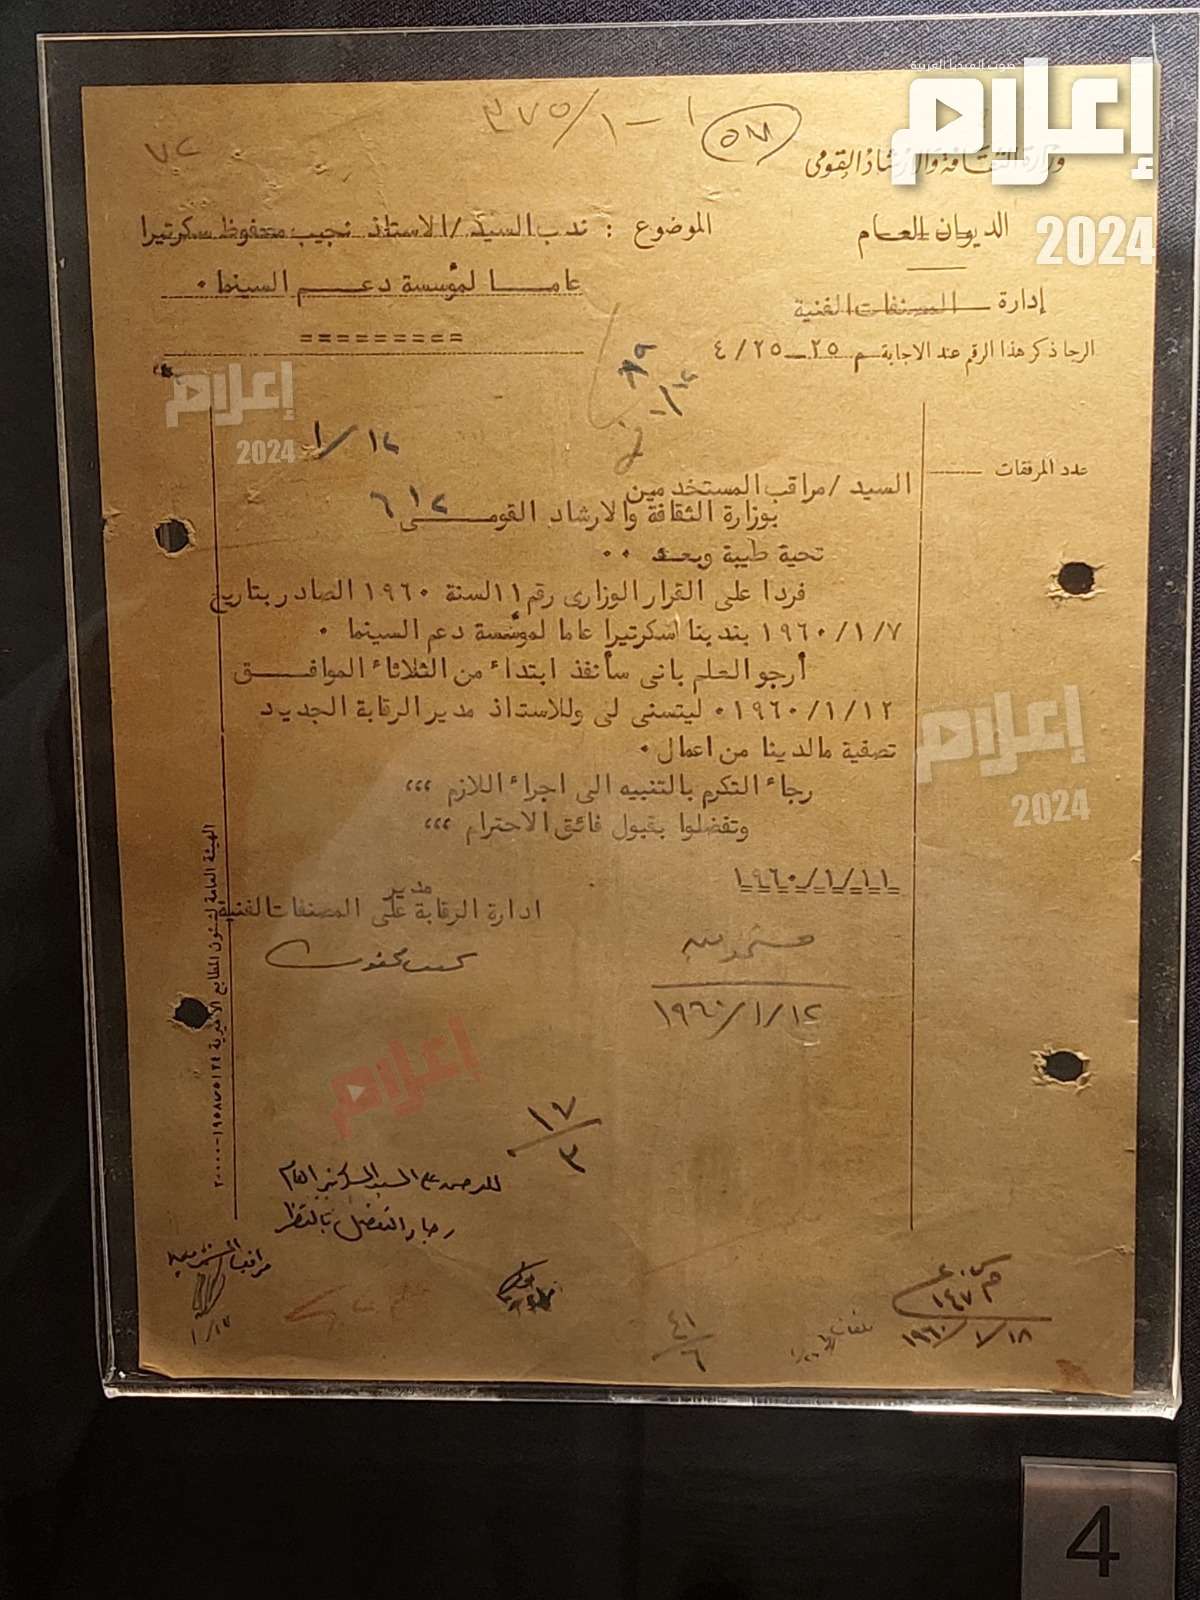 صوت الميديا العربية
إعلام
2024
٣٧٥/١-١
وزارة الثقافة والإرشاد القومى
الديوان العام
إدارة المصنفات الفنية
الرجا ذكر هذا الرقم عند الاجابة م ٢٥-٢٥/٤
عدد المرفقات
الموضوع : ندب السيد/الاستاذ نجيب محفوظ سكرتيرا
عاما لمؤسسة دعم السينما ٠
=========
إعلام
2024
١/١٢
السيد/مراقب المستخدمين
بوزارة الثقافة والارشاد القومى
تحية طيبة وبعد ٠٠
فردا على القرار الوزارى رقم ١١ لسنة ١٩٦٠ الصادر بتاريخ
١٩٦٠/١/٧ بندبنا سكرتيرا عاما لمؤسسة دعم السينما ٠
أرجو العلم بانى سأنفذ ابتداء من الثلاثاء الموافق
١٩٦٠/١/١٢ ٠ ليتسنى لى وللاستاذ مدير الرقابة الجديد
تصفية مالدينا من اعمال ٠
رجاء التكرم بالتنبيه الى اجراء اللازم ،،،
وتفضلوا بقبول فائق الاحترام ،،،
إعلام
2024
١٩٦٠/١/١١
مدير
ادارة الرقابة على المصنفات الفنية
نجيب محفوظ
١٩٦٠/١/١٢
الهيئة العامة لشئون المطابع الأميرية
إعلام
١٧/٣
للعرض على السيد السكرتير العام
رجاء التفضل بالنظر
مراقب المستخدمين
١/١٢
٤١/٦
١٤٧
١٩٦٠/١/١٨
4